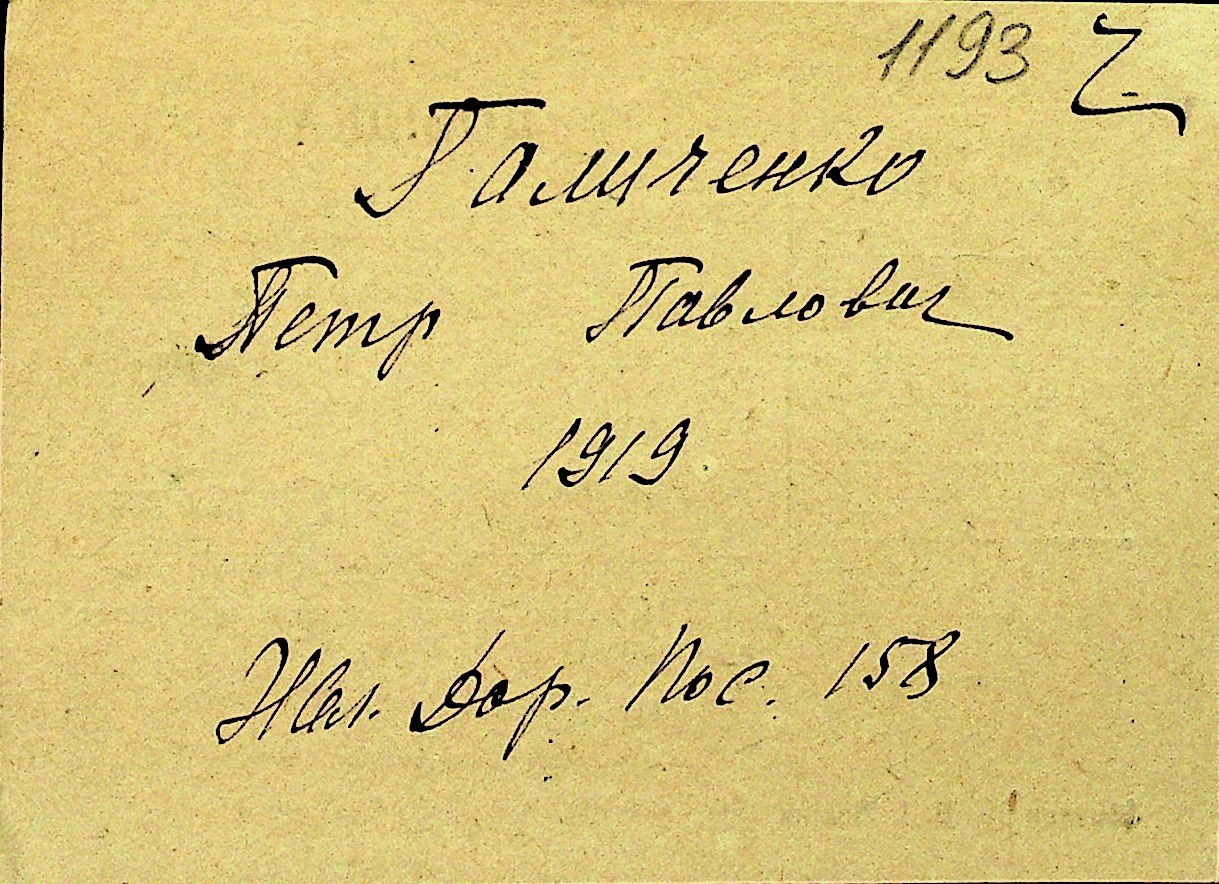 1193
Галиченко
Петр Павлович
1919
Жел. Дор. Пос. 158